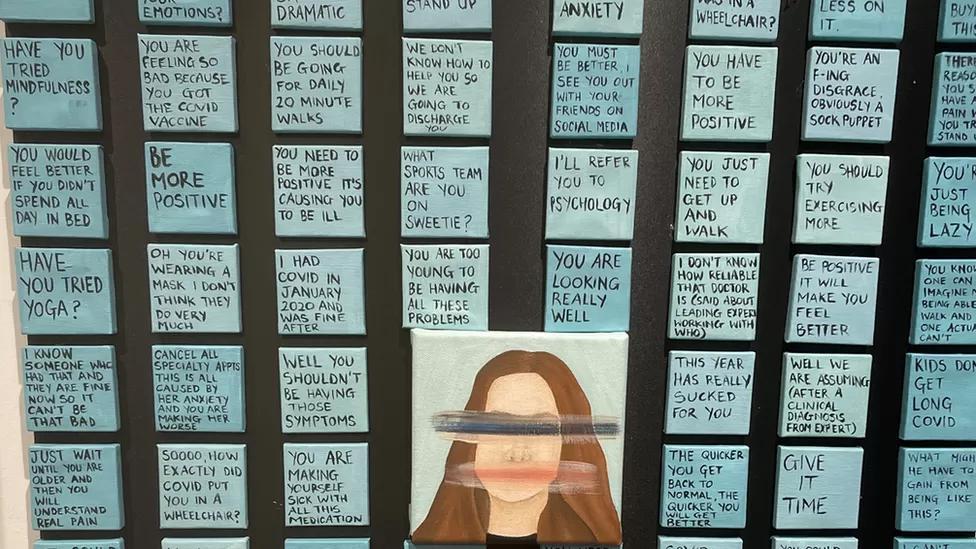 YOUR
EMOTIONS?
DRAMATIC
STAND UP
ANXIETY
WAS IN A
WHEELCHAIR?
LESS ON
IT.
BUYI
THIS
HAVE YOU
TRIED
MINDFULNESS
?
YOU ARE
FEELING SO
BAD BECAUSE
YOU GOT
THE COVID
VACCINE
YOU SHOULD
BE GOING
FOR DAILY
20 MINUTE
WALKS
WE DON'T
KNOW HOW TO
HELP YOU SO
WE ARE
GOING TO
DISCHARGE
YOU
YOU MUST
BE BETTER, I
SEE YOU OUT
WITH YOUR
FRIENDS ON
SOCIAL MEDIA
YOU HAVE
TO BE
MORE
POSITIVE
YOU'RE AN
F-ING
DISGRACE,
OBVIOUSLY A
SOCK PUPPET
THERE
REASO
YOU S
HAVE A
PAIN W
YOU TR
STAND
YOU WOULD
FEEL BETTER
IF YOU DIDN'T
SPEND ALL
DAY IN BED
BE
MORE
POSITIVE
YOU NEED TO
BE MORE
POSITIVE IT'S
CAUSING YOU
TO BE ILL
WHAT
SPORTS TEAM
ARE YOU
ON
SWEETIE?
I'LL REFER
YOU TO
PSYCHOLOGY
YOU JUST
NEED TO
GET UP
AND
WALK
YOU SHOULD
TRY
EXERCISING
MORE
YOU'RE
JUST
BEING
LAZY
HAVE
YOU TRIED
YOGA?
OH YOU'RE
WEARING A
MASK I DON'T
THINK THEY
DO VERY
MUCH
I HAD
COVID IN
JANUARY
2020 AND
WAS FINE
AFTER
YOU ARE TOO
YOUNG TO
BE HAVING
ALL THESE
PROBLEMS
YOU ARE
LOOKING
REALLY
WELL
I DON'T KNOW
HOW RELIABLE
THAT DOCTOR
IS (SAID ABOUT
LEADING EXPERT
WORKING WITH
WHO)
BE POSITIVE
IT WILL
MAKE YOU
FEEL
BETTER
YOU KNO
ONE CAN
IMAGINE
BEING ABL
WALK AND
ONE ACTUA
CAN'T
I KNOW
SOMEONE WHO
HAD THAT AND
THEY ARE FINE
NOW SO IT
CAN'T BE
THAT BAD
CANCEL ALL
SPECIALTY APPTS
THIS IS ALL
CAUSED BY
HER ANXIETY
AND YOU ARE
MAKING HER
WORSE
WELL YOU
SHOULDN'T
BE HAVING
THOSE
SYMPTOMS
THIS YEAR
HAS REALLY
SUCKED
FOR YOU
WELL WE
ARE ASSUMING
(AFTER A
CLINICAL
DIAGNOSIS
FROM EXPERT)
KIDS DON
GET
LONG
COVID
JUST WAIT
UNTIL YOU ARE
OLDER AND
THEN YOU
WILL
UNDERSTAND
REAL PAIN
SOOOO, HOW
EXACTLY DID
COVID PUT
YOU IN A
WHEELCHAIR?
YOU ARE
MAKING
YOURSELF
SICK WITH
ALL THIS
MEDICATION
THE QUICKER
YOU GET
BACK TO
NORMAL, THE
QUICKER YOU
WILL GET
BETTER
GIVE
IT
TIME
WHAT MIGH
HE HAVE TO
GAIN FROM
BEING LIKE
THIS?